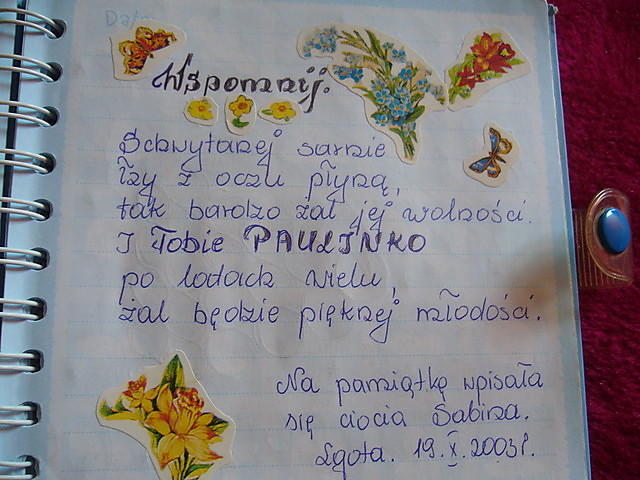 Wspomnij.
Schwytanej sarnie
łzy z oczu płyną,
tak bardzo żal jej wolności.
I Tobie PAULINKO
po latach wielu,
żal będzie pięknej młodości.
Na pamiątkę wpisała
się ciocia Sabina.
Lgota. 19.X.2003r.